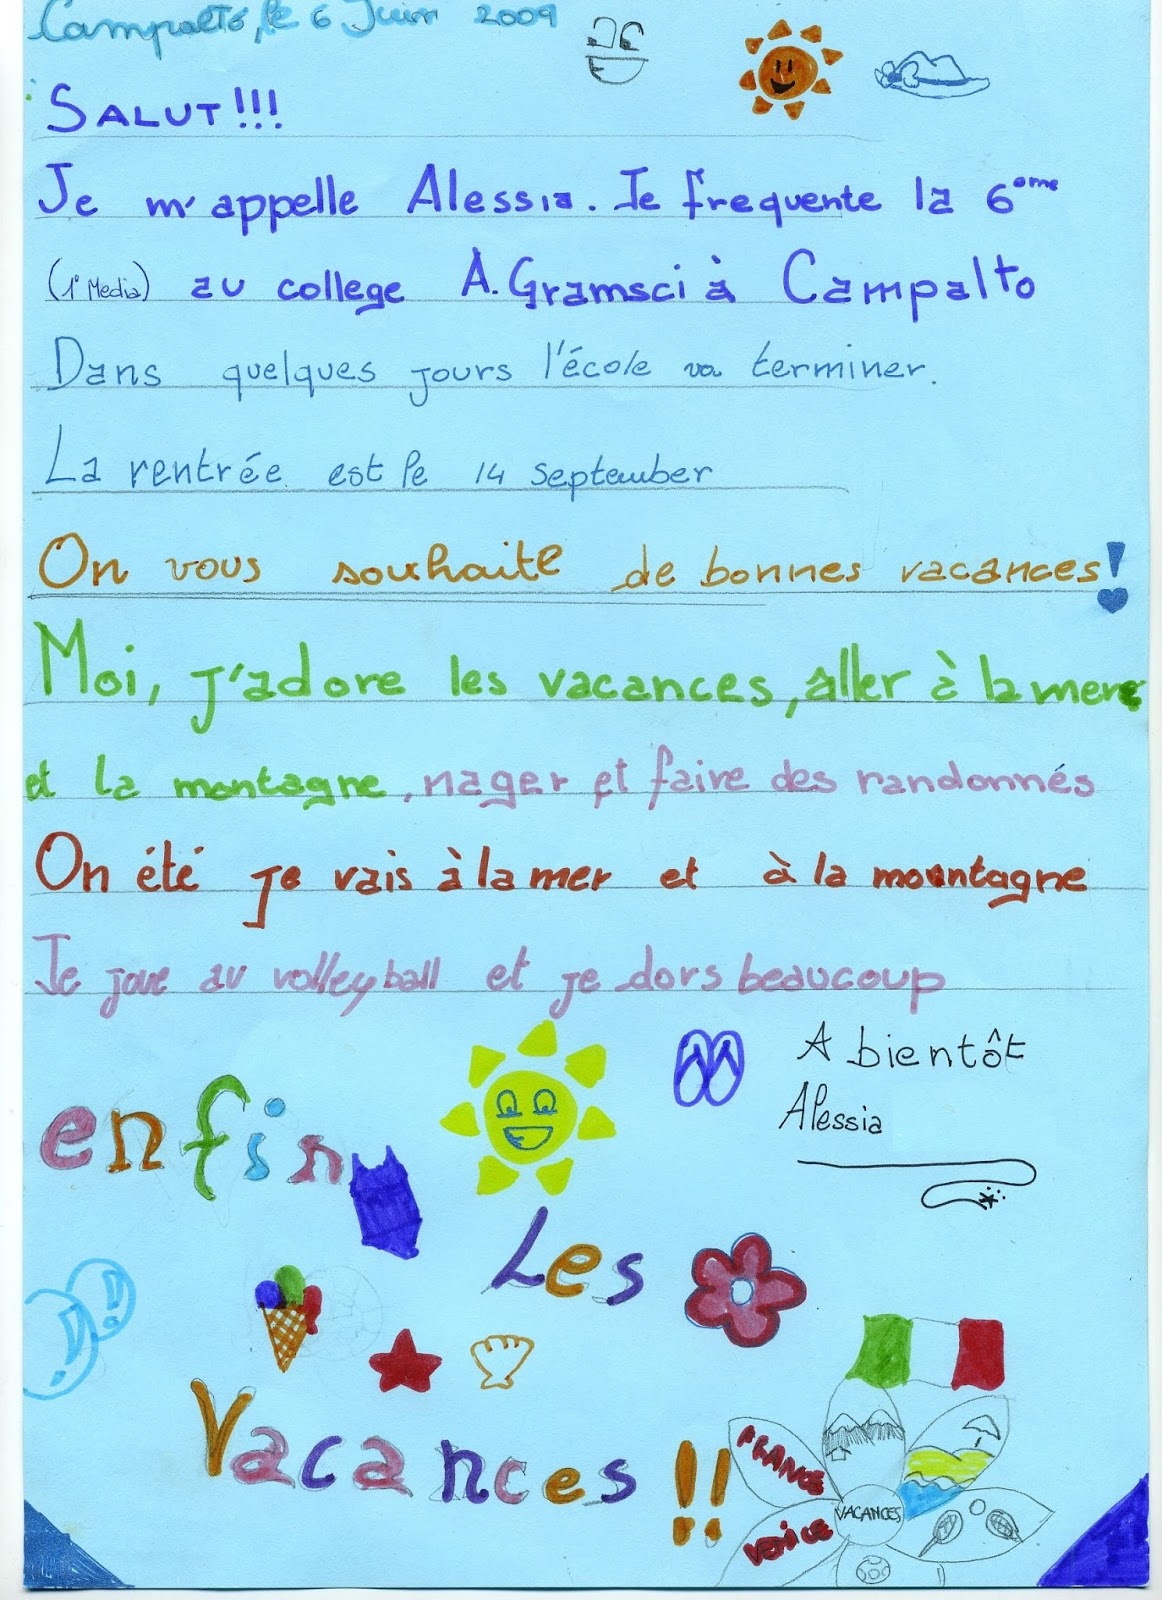 Campalto, le 6 Juin 2009
SALUT!!!
Je m'appelle Alessia. Je frequente la 6ème
(1° Media) au college A. Gramsci à Campalto
Dans quelques jours l'école va terminer.
La rentrée est le 14 September
On vous souhaite de bonnes vacances!
Moi, j'adore les vacances, aller à la mere
et la montagne, nager et faire des randonnés
On été je vais à la mer et à la montagne
Je joue au volleyball et je dors beaucoup
A bientôt
Alessia
enfin
Les
Vacances !!
FRANCE
VENICE
VACANCES